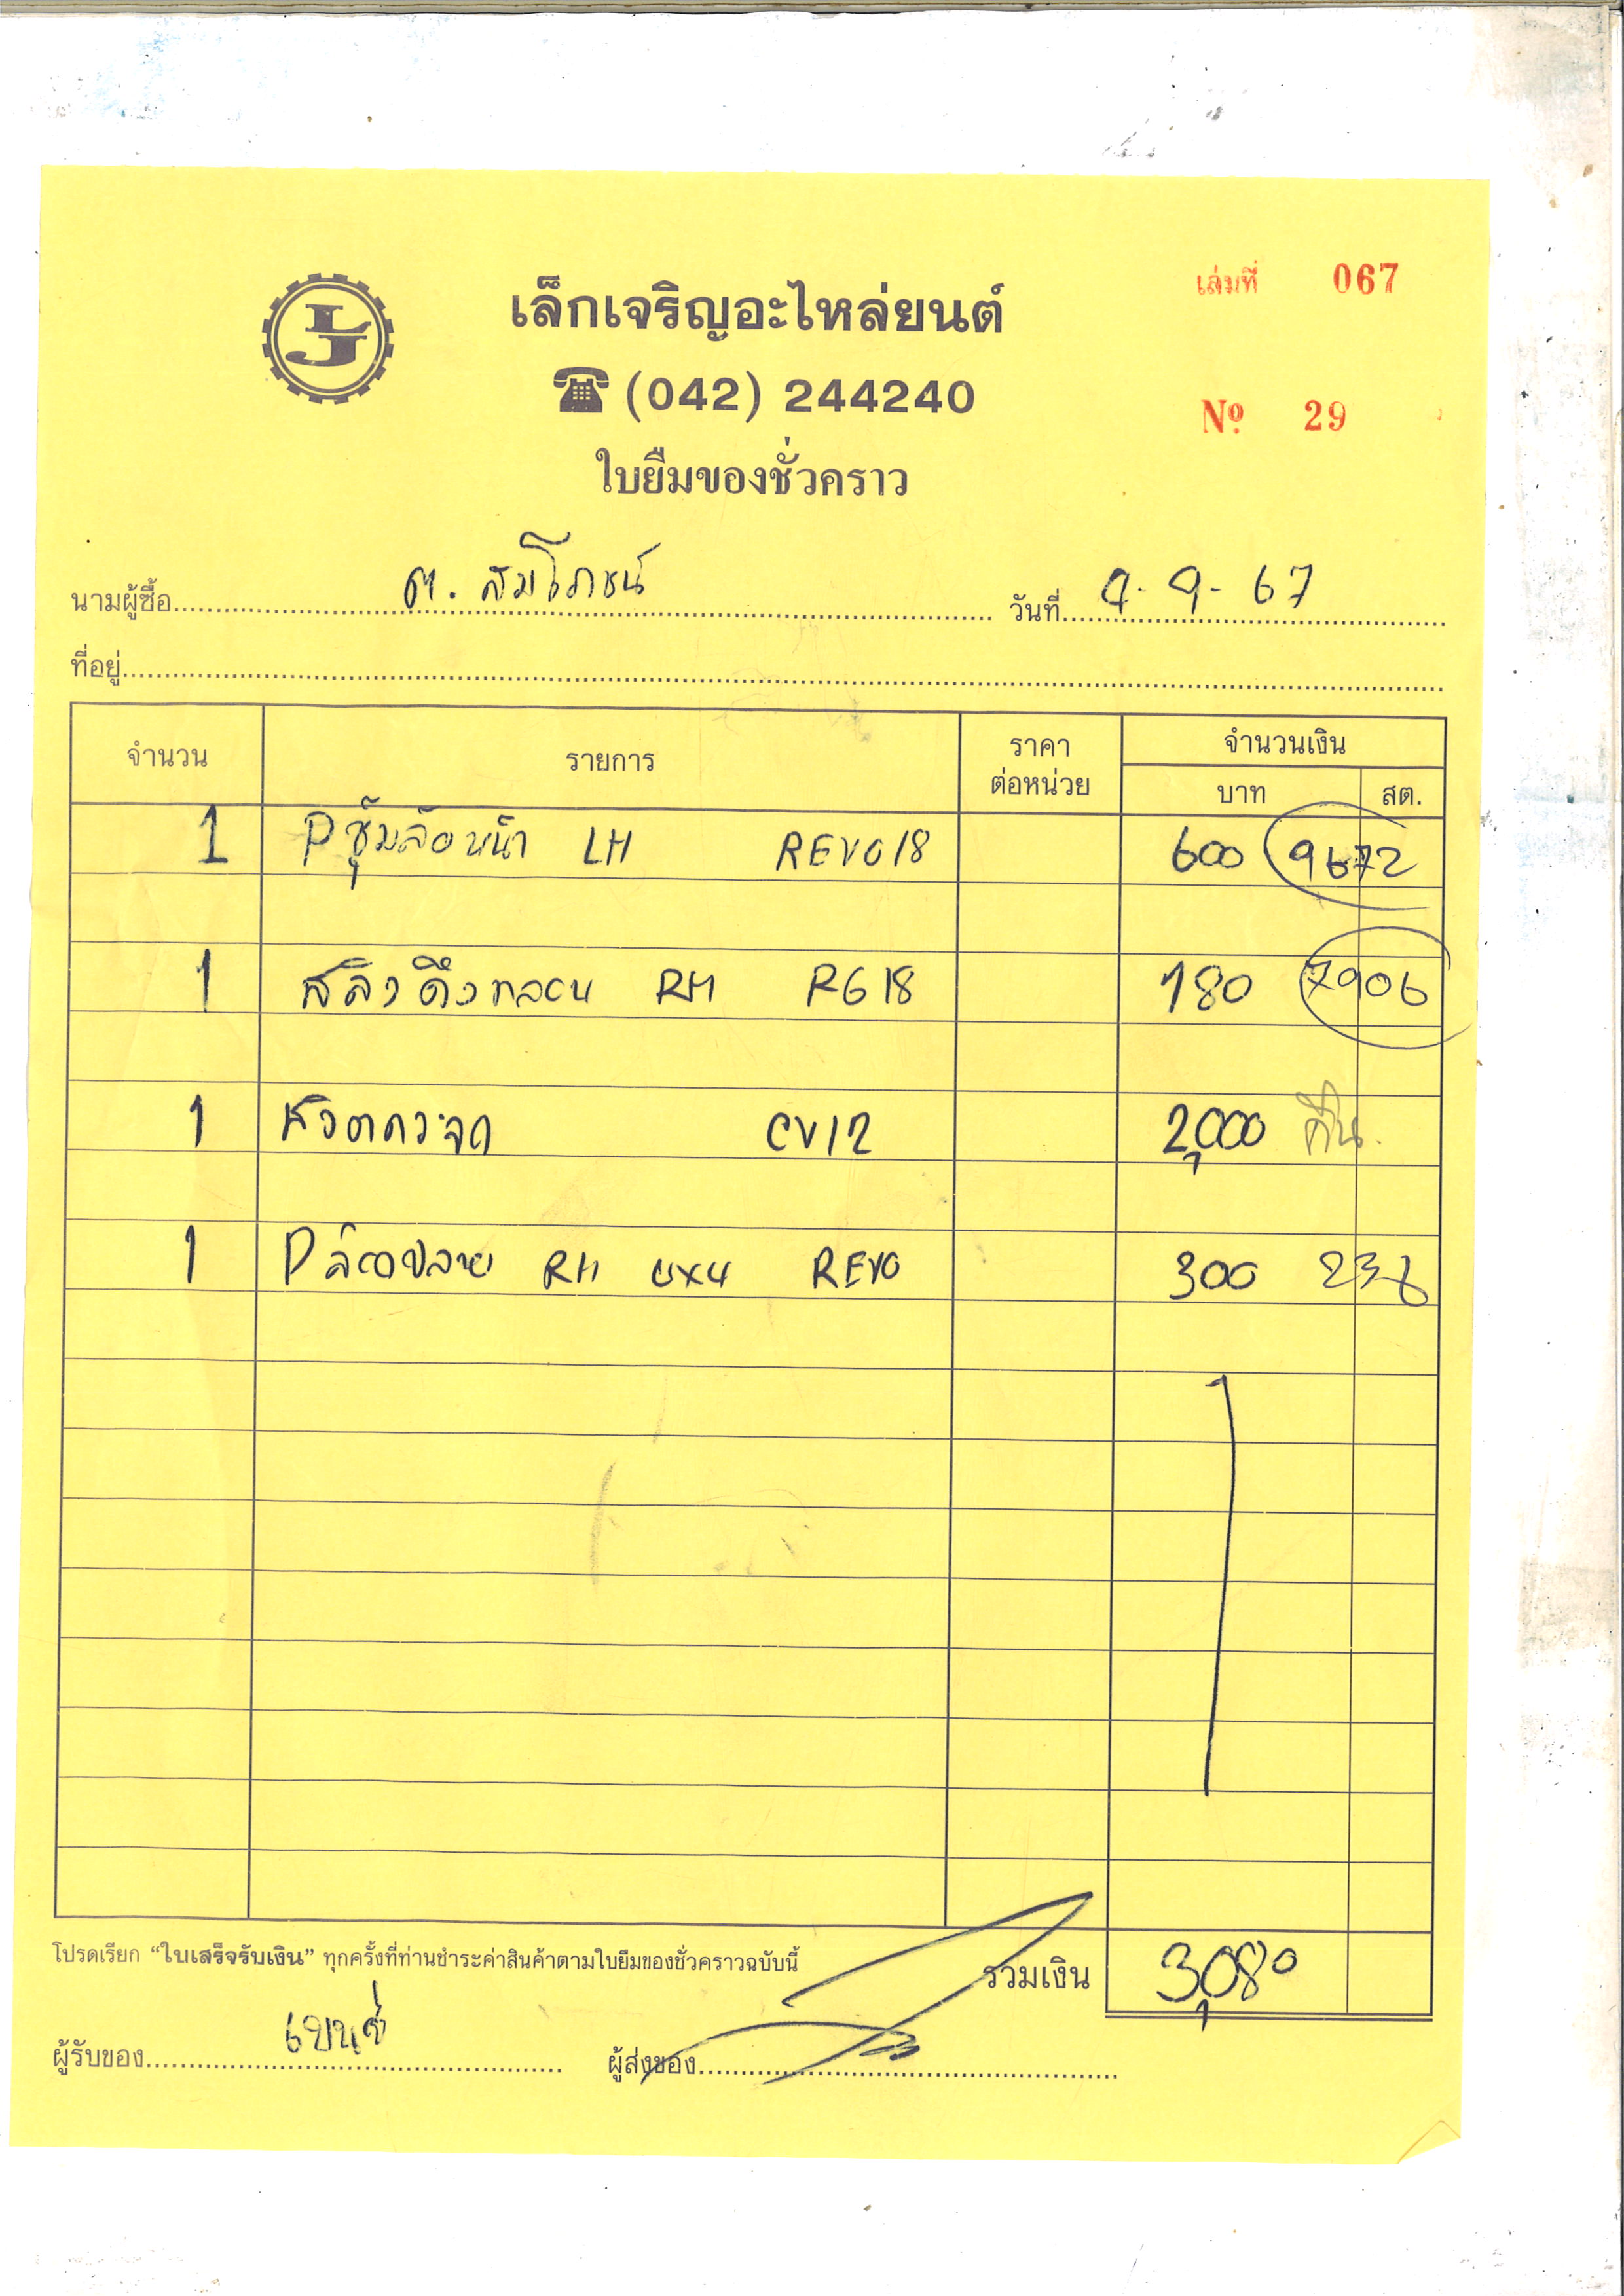 LJ
เล็กเจริญอะไหล่ยนต์
เล่มที่ 067
(042) 244240
Nº 29
ใบยืมของชั่วคราว
นามผู้ซื้อ ต. สัมโภชน์ วันที่ 9-9-67
ที่อยู่
จำนวน รายการ ราคาต่อหน่วย จำนวนเงิน
บาท สต.
1 Pซุ้มล้อหน้า LH REVO18 600 9672
1 สลิงดึงกลอน RH RG18 180 7906
1 CV12 2,000 คืน
1 RH 4x4 REVO 300
โปรดเรียก “ใบเสร็จรับเงิน” ทุกครั้งที่ท่านชำระค่าสินค้าตามใบยืมของชั่วคราวฉบับนี้
รวมเงิน 3,080
ผู้รับของ เบนซ์ ผู้ส่งของ